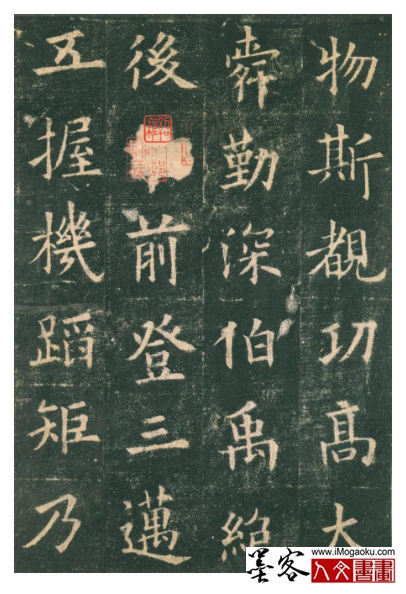 物斯覩功高大
舜勤深伯禹絶
後前登三邁
五握機蹈矩乃
墨客
www.iMogaoku.com
人文書畫